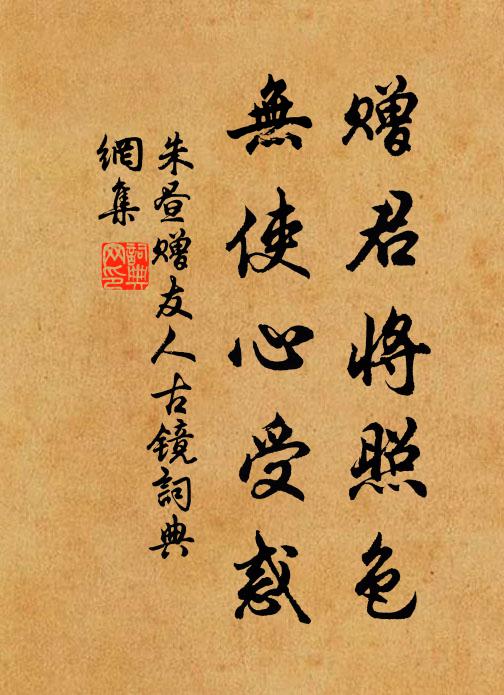 赠君将照色
無使心受惑
朱昼赠友人古镜詞典
網集
詞典
网印